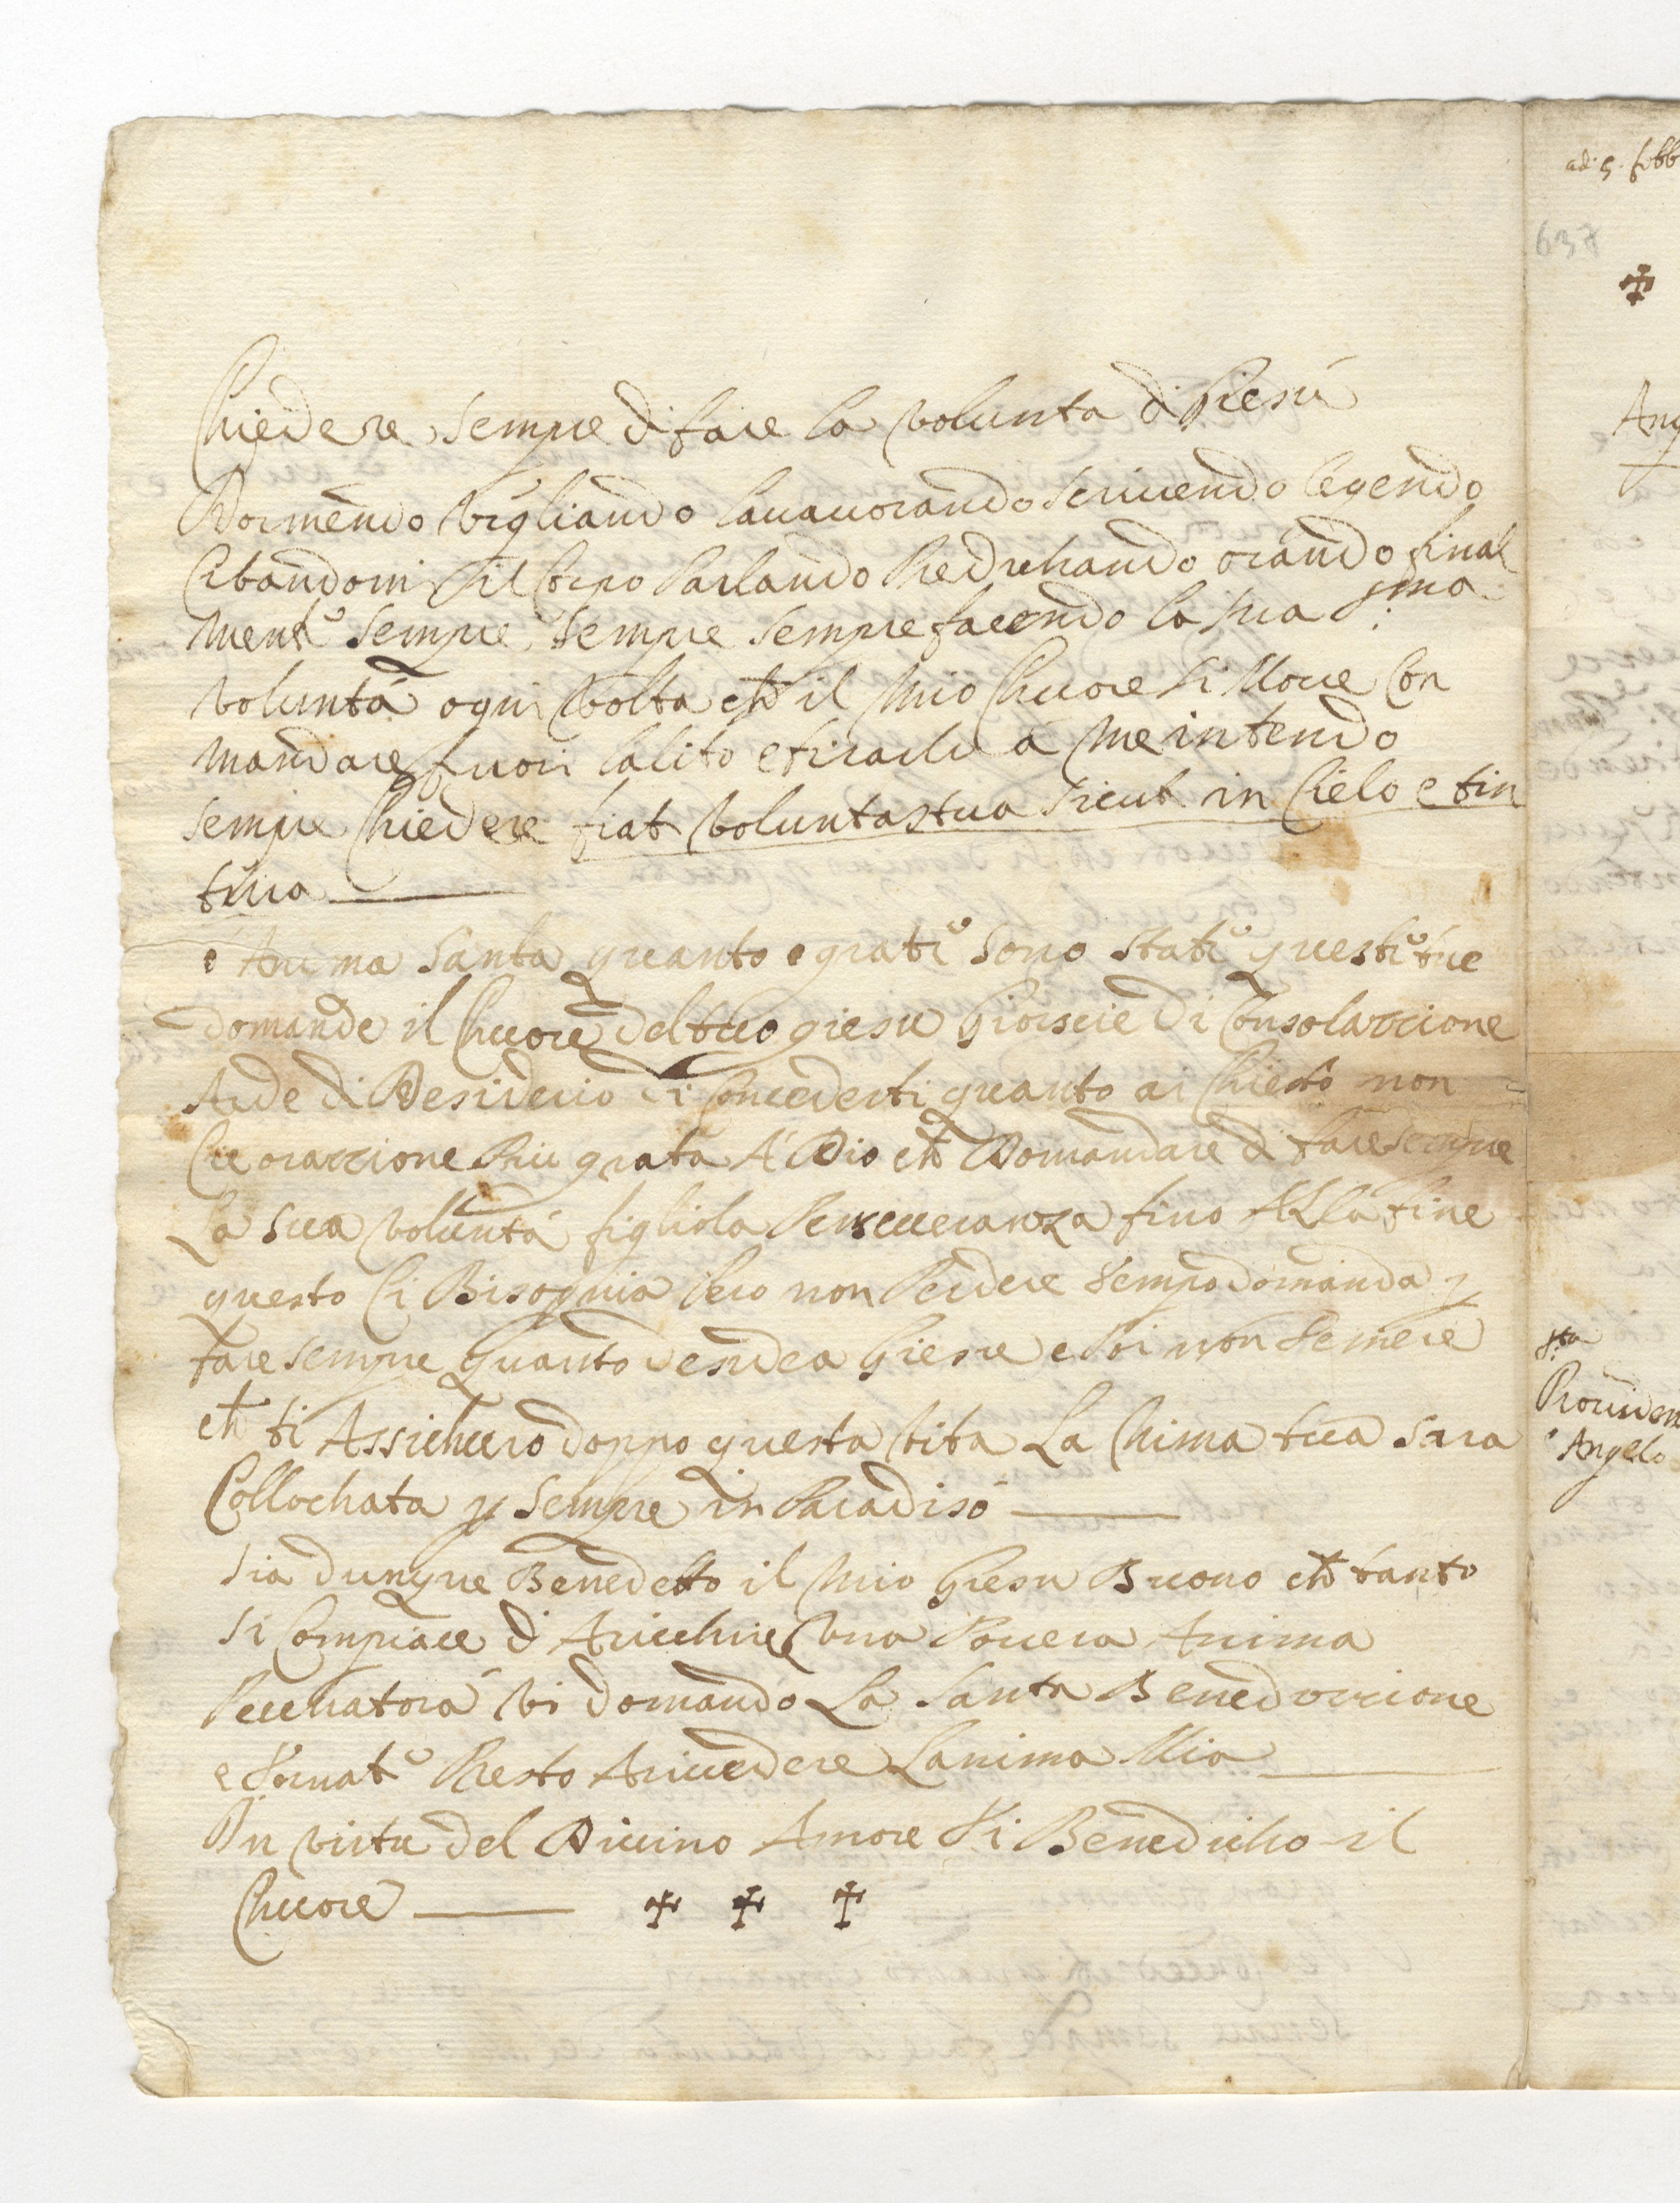 Chiedere sempre di fare la volunta di Giesù
Dormendo vigliando lavavorando scrivendo legendo
Cibandomi il Corpo Parlando Predichando orando final
mente sempre sempre sempre facendo la sua S:ma
voluntà ogni volta ch il mio Chuore si Move Con
mandare fuori lalito e tirarlo à me intendo
sempre Chiedere fiat voluntas tua sicut in Cielo etin
tera
Anima Santa quanto grati sono stati questi tue
domande il Chuore del tuo giesu Gioiscie di Consolaccione
Arde di Desiderio di Concederti quanto ai Chiesto non
Cie oraccione Piu grata A Dio ch Domandare di fare sempre
La sua voluntà figliola Perseveranza fino Alla fine
questo Ci Bisognia Pero non Perdere tempo domanda p
fare sempre quanto Giesu e Poi non temere
ch ti Assichuro doppo questa vita La hnima tua sara
Collochata p sempre in Paradiso
Sia dunque Benedetto il mio Giesu Buono ch tanto
si Compiace d Aricchire una Povera Anima
Pecchatora vi domando La Santa Benediccione
e tornate Presto Arivedere Lanima Mia
In virtu del Divino Amore ti Benedicho il
Chuore ✠ ✠ ✠
ad: 5. febb
637
✠
Ang
S:ta
Providen
Angelo